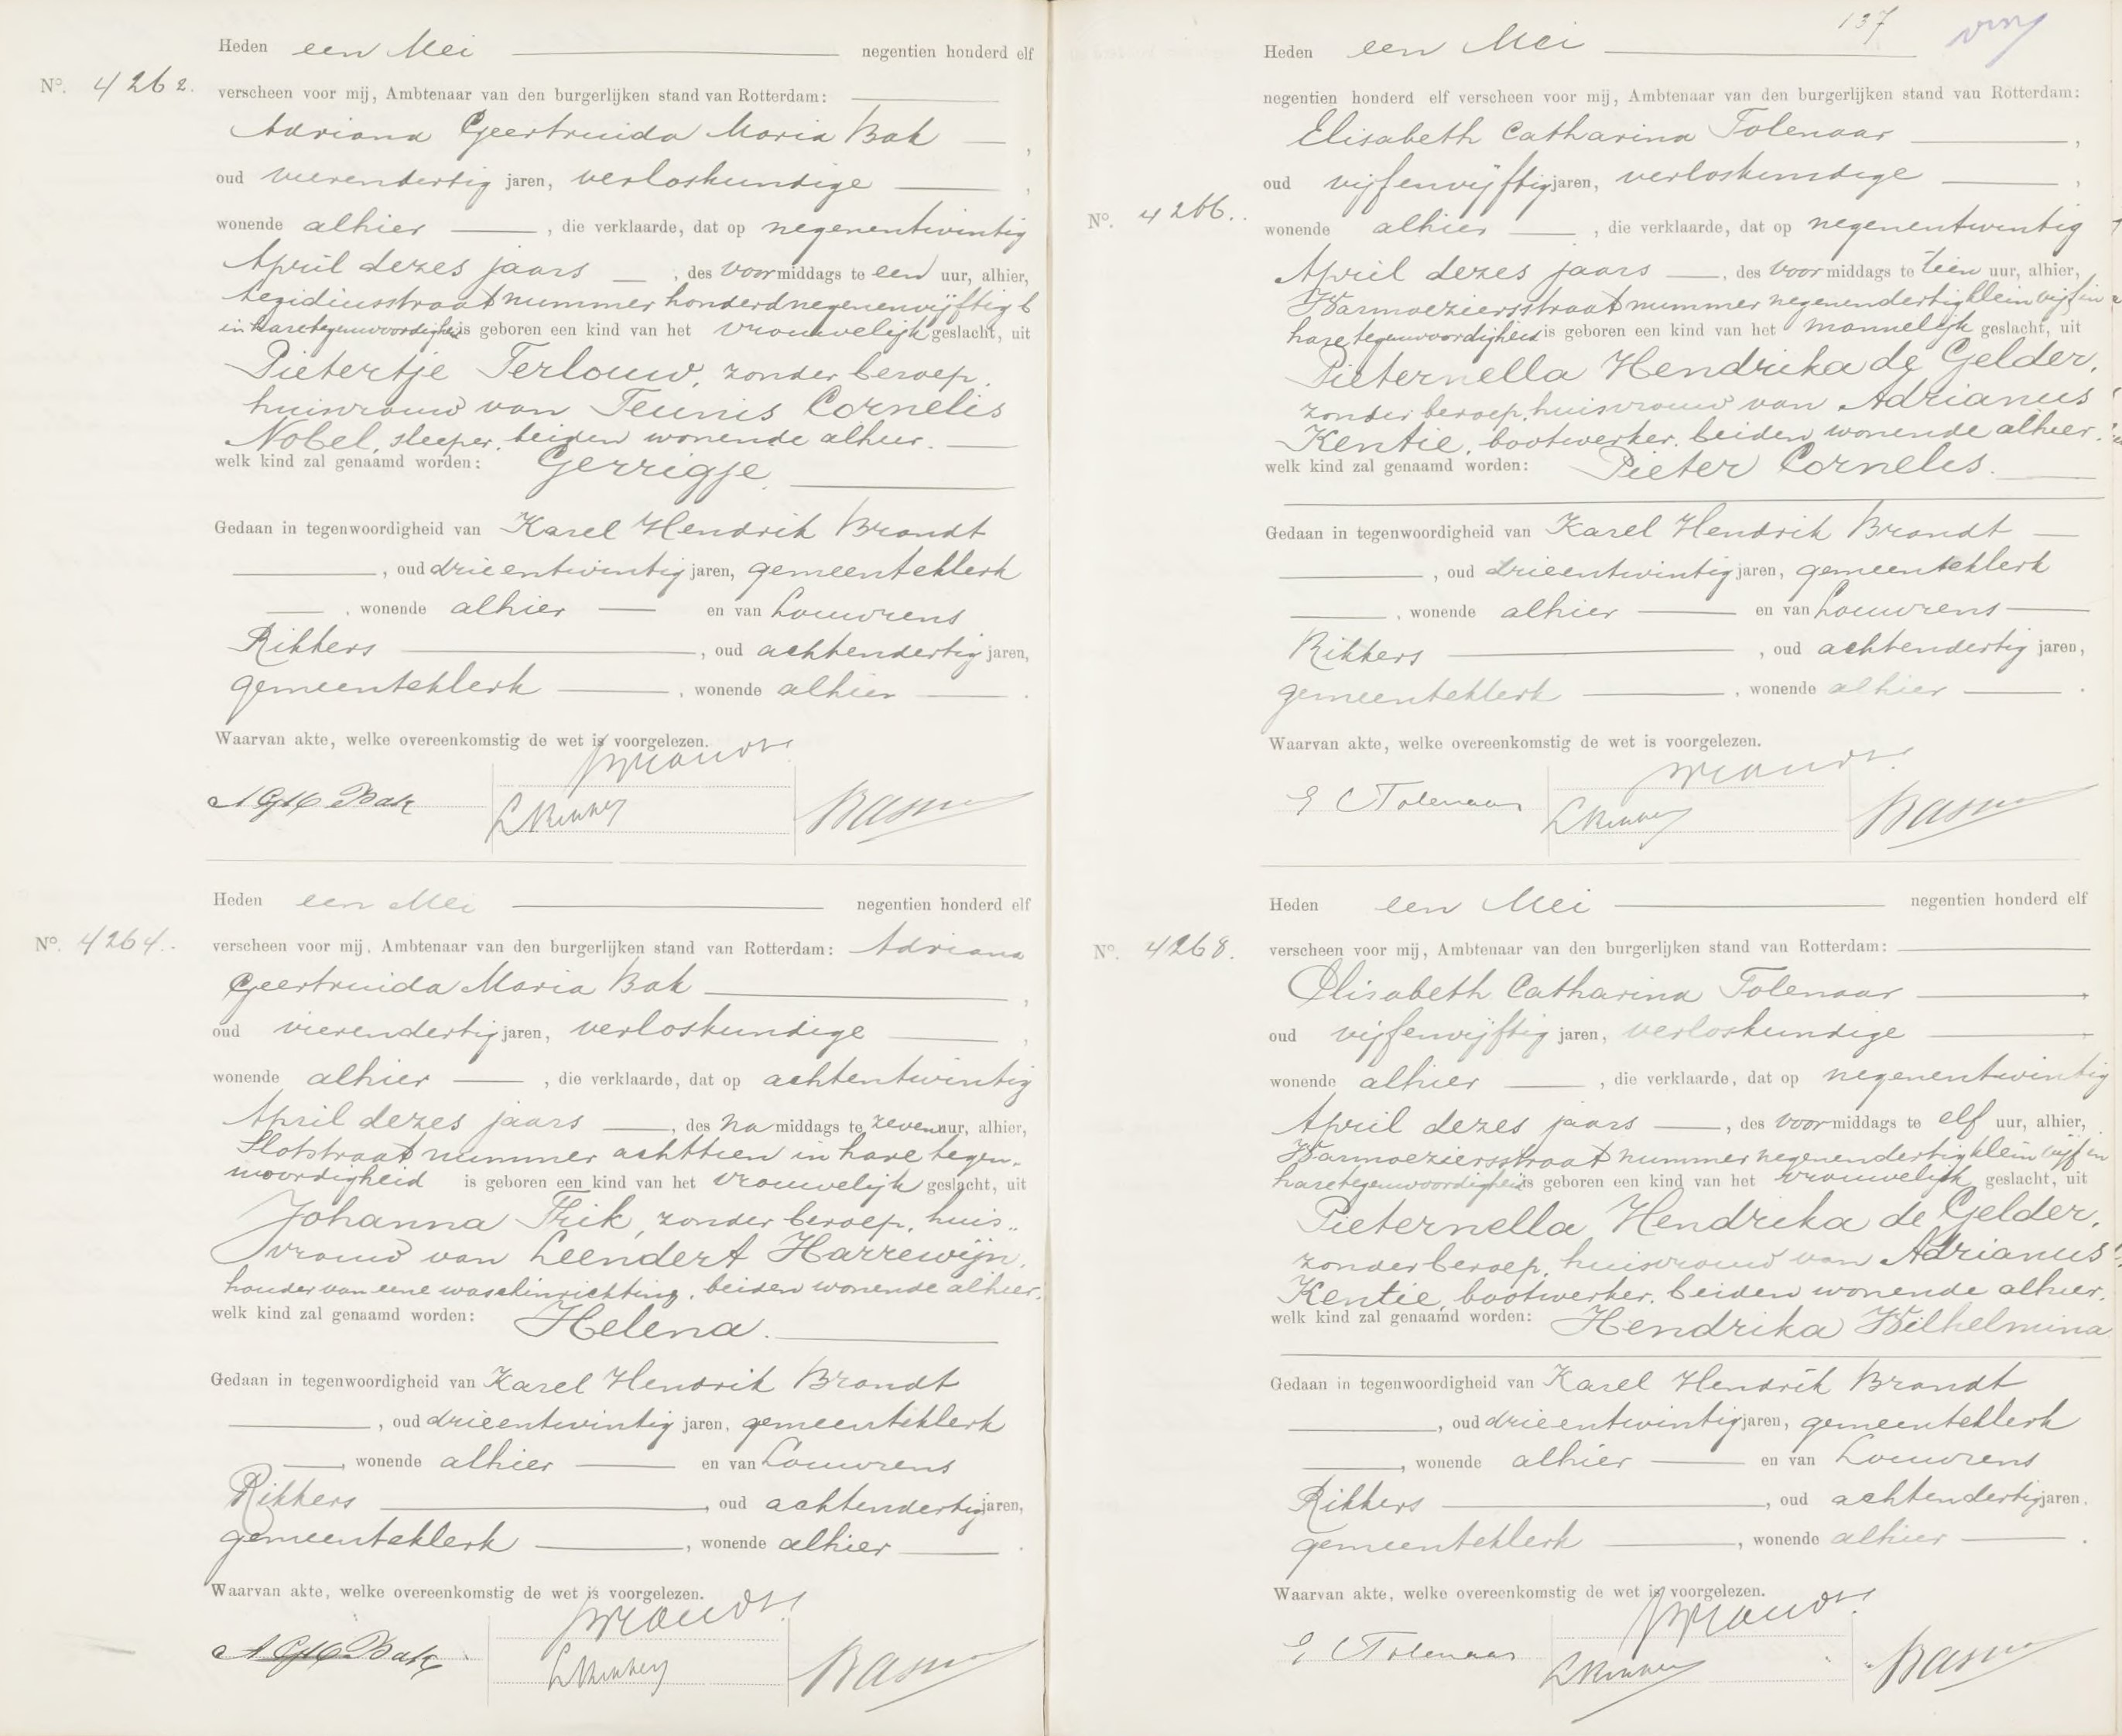 Heden een Mei negentien honderd elf
No. 4262. verscheen voor mij, Ambtenaar van den burgerlijken stand van Rotterdam:
Adriana Geertruida Maria Bak,
oud vierendertig jaren, verloskundige,
wonende alhier, die verklaarde, dat op negenentwintig
April dezes jaars, des voormiddags te een uur, alhier,
Aegidiusstraat nummer honderdnegenenvijftig b
in hare tegenwoordigheid is geboren een kind van het vrouwelijk geslacht, uit
Pietertje Terlouw, zonder beroep,
huisvrouw van Teunis Cornelis
Nobel, sleeper, beiden wonende alhier.
welk kind zal genaamd worden: Gerrigje.
Gedaan in tegenwoordigheid van Karel Hendrik Brandt
, oud drieentwintig jaren, gemeenteklerk
, wonende alhier en van Louwrens
Rikkers, oud achtendertig jaren,
gemeenteklerk, wonende alhier.
Waarvan akte, welke overeenkomstig de wet is voorgelezen.
Brandt
AGM Bak LRikkers
Heden een Mei negentien honderd elf
No. 4264. verscheen voor mij, Ambtenaar van den burgerlijken stand van Rotterdam: Adriana
Geertruida Maria Bak,
oud vierendertig jaren, verloskundige,
wonende alhier, die verklaarde, dat op achtentwintig
April dezes jaars, des namiddags te zeven uur, alhier,
Slotstraat nummer achttien in hare tegen-
woordigheid is geboren een kind van het vrouwelijk geslacht, uit
Johanna Frik, zonder beroep, huis-
vrouw van Leendert Harrewijn,
houder van eene waschinrichting, beiden wonende alhier.
welk kind zal genaamd worden: Helena.
Gedaan in tegenwoordigheid van Karel Hendrik Brandt
, oud drieentwintig jaren, gemeenteklerk
, wonende alhier en van Louwrens
Rikkers, oud achtendertig jaren,
gemeenteklerk, wonende alhier.
Waarvan akte, welke overeenkomstig de wet is voorgelezen.
Brandt
AGM Bak LRikkers
137
Heden een Mei
negentien honderd elf verscheen voor mij, Ambtenaar van den burgerlijken stand van Rotterdam:
Elisabeth Catharina Tolenaar,
oud vijfenvijftig jaren, verloskundige,
No. 4266. wonende alhier, die verklaarde, dat op negenentwintig
April dezes jaars, des voormiddags te tien uur, alhier,
Warmoeziersstraat nummer negenendertig klein vijf in
hare tegenwoordigheid is geboren een kind van het mannelijk geslacht, uit
Pieternella Hendrika de Gelder,
zonder beroep, huisvrouw van Adrianus
Kentie, bootwerker, beiden wonende alhier.
welk kind zal genaamd worden: Pieter Cornelis.
Gedaan in tegenwoordigheid van Karel Hendrik Brandt
, oud drieentwintig jaren, gemeenteklerk
, wonende alhier en van Louwrens
Rikkers, oud achtendertig jaren,
gemeenteklerk, wonende alhier.
Waarvan akte, welke overeenkomstig de wet is voorgelezen.
Brandt
E C Tolenaar LRikkers
Heden een Mei negentien honderd elf
No. 4268. verscheen voor mij, Ambtenaar van den burgerlijken stand van Rotterdam:
Elisabeth Catharina Tolenaar
oud vijfenvijftig jaren, verloskundige
wonende alhier, die verklaarde, dat op negenentwintig
April dezes jaars, des voormiddags te elf uur, alhier,
Warmoeziersstraat nummer negenendertig klein vijf in
hare tegenwoordigheid is geboren een kind van het vrouwelijk geslacht, uit
Pieternella Hendrika de Gelder,
zonder beroep, huisvrouw van Adrianus
Kentie, bootwerker, beiden wonende alhier.
welk kind zal genaamd worden: Hendrika Wilhelmina
Gedaan in tegenwoordigheid van Karel Hendrik Brandt
, oud drieentwintig jaren, gemeenteklerk
, wonende alhier en van Louwrens
Rikkers, oud achtendertig jaren,
gemeenteklerk, wonende alhier.
Waarvan akte, welke overeenkomstig de wet is voorgelezen.
Brandt
E C Tolenaar LRikkers